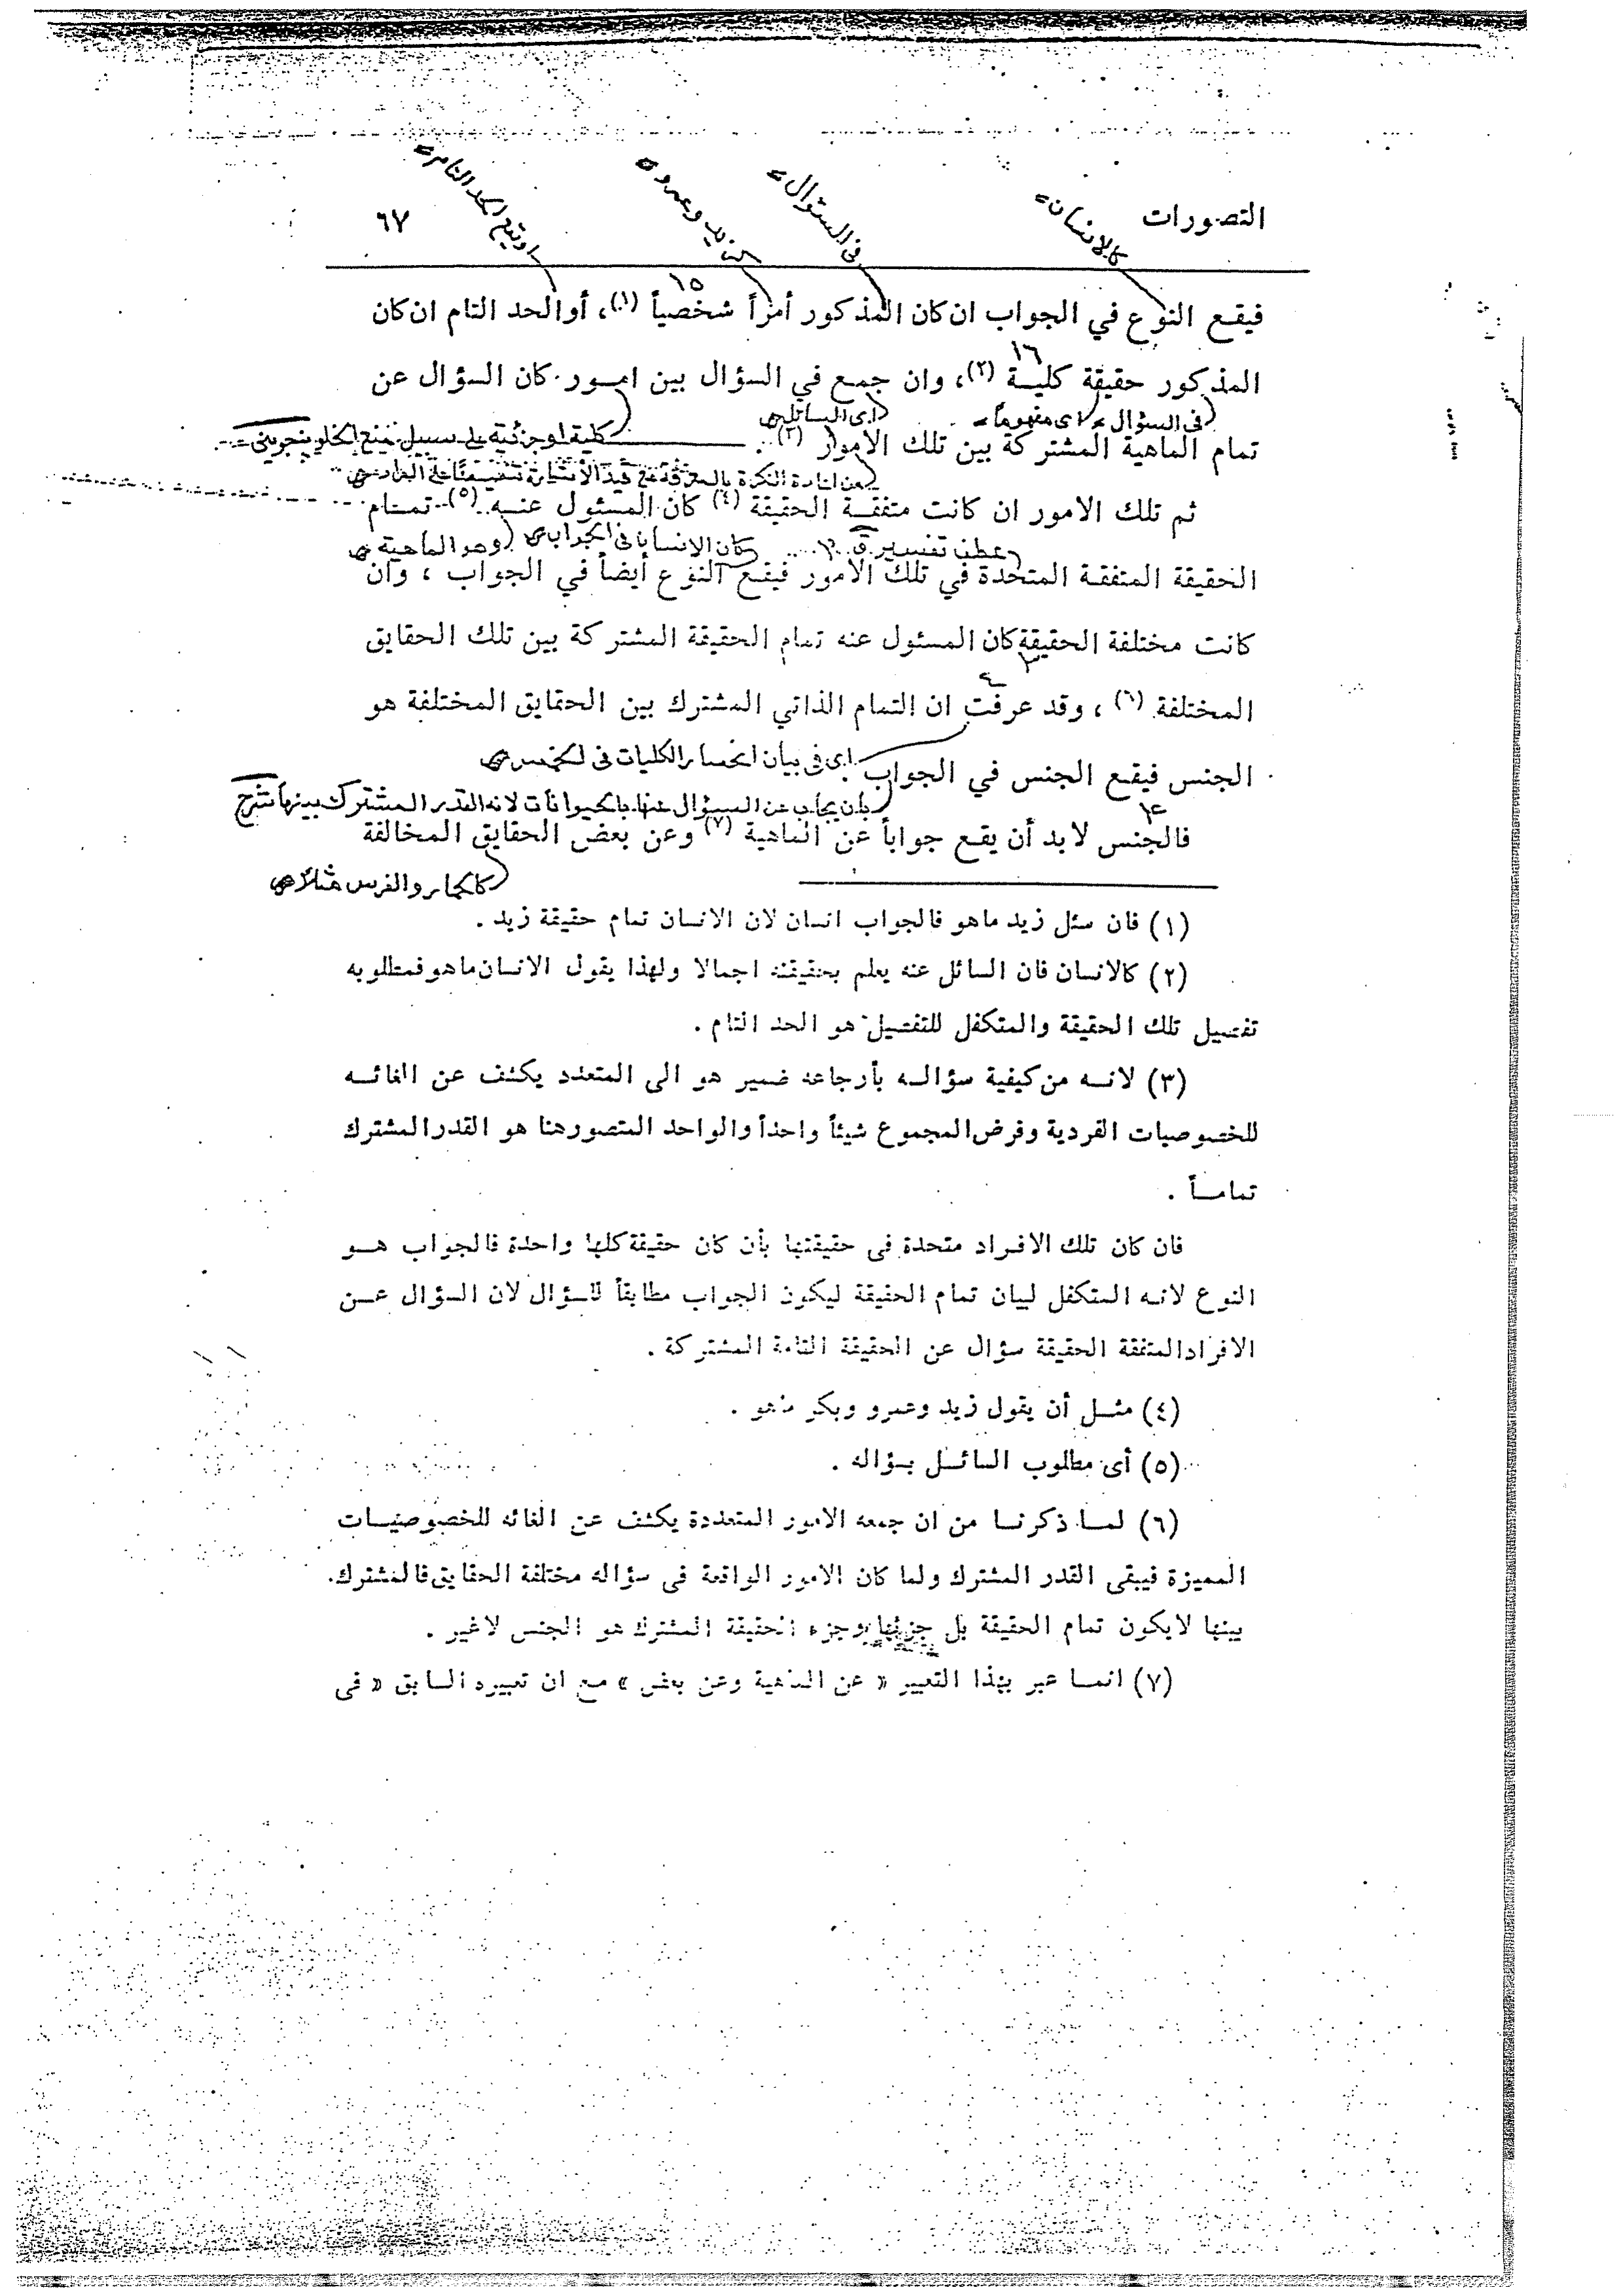 كالانسان
فى السئوال
كزيد وعمرو
او يقع الحد التام
التصورات
٦٧
١٥
فيقع النوع في الجواب ان كان المذكور أمراً شخصياً (١)، أو الحد التام ان كان
١٦
المذكور حقيقة كلية (٢)، وان جمع في السؤال بين امور كان السؤال عن
فى السئوال اى مفهوماً
اى السائل
كلية او جزئية على سبيل منع الخلو پنجوينى
تمام الماهية المشتركة بين تلك الامور (٣) .
ثم تلك الامور ان كانت متفقة الحقيقة (٤) كان المسئول عنه (٥) تمام
عطف تفسير
كان الانسان فى الجواب
وهو الماهية
الحقيقة المتفقة المتحدة في تلك الامور فيقع النوع أيضاً في الجواب ، وان
كانت مختلفة الحقيقة كان المسئول عنه تمام الحقيقة المشتركة بين تلك الحقايق
المختلفة (٦) ، وقد عرفت ان التمام الذاتي المشترك بين الحقايق المختلفة هو
الجنس فيقع الجنس في الجواب .
اى فى بيان انحصار الكليات فى الخمس
بان يجاب عن السئوال عنها بالحيوانات لانه القدر المشترك بينها شرح
فالجنس لابد أن يقع جواباً عن الماهية (٧) وعن بعض الحقايق المخالفة
كالحمار والفرس مثلا
(١) فان سئل زيد ماهو فالجواب انسان لان الانسان تمام حقيقة زيد .
(٢) كالانسان فان السائل عنه يعلم بحقيقته اجمالا ولهذا يقول الانسان ماهو فمطلوبه
تفصيل تلك الحقيقة والمتكفل للتفصيل هو الحد التام .
(٣) لانه من كيفية سؤاله بأرجاعه ضمير هو الى المتعدد يكشف عن الغائه
للخصوصيات الفردية وفرض المجموع شيئاً واحداً والواحد المتصور هنا هو القدر المشترك
تماماً .
فان كان تلك الافراد متحدة فى حقيقتها بأن كان حقيقة كلها واحدة فالجواب هو
النوع لانه المتكفل لبيان تمام الحقيقة ليكون الجواب مطابقاً للسؤال لان السؤال عن
الافراد المتفقة الحقيقة سؤال عن الحقيقة التامة المشتركة .
(٤) مثل أن يقول زيد وعمرو وبكر ماهو .
(٥) أى مطلوب السائل بسؤاله .
(٦) لما ذكرنا من ان جمعه الامور المتعددة يكشف عن الغائه للخصوصيات
المميزة فيبقى القدر المشترك ولما كان الامور الواقعة فى سؤاله مختلفة الحقايق فالمشترك
بينها لايكون تمام الحقيقة بل جزئها وجزء الحقيقة المشترك هو الجنس لاغير .
(٧) انما عبر بهذا التعبير « عن الماهية وعن بعض » مع ان تعبيره السابق « فى